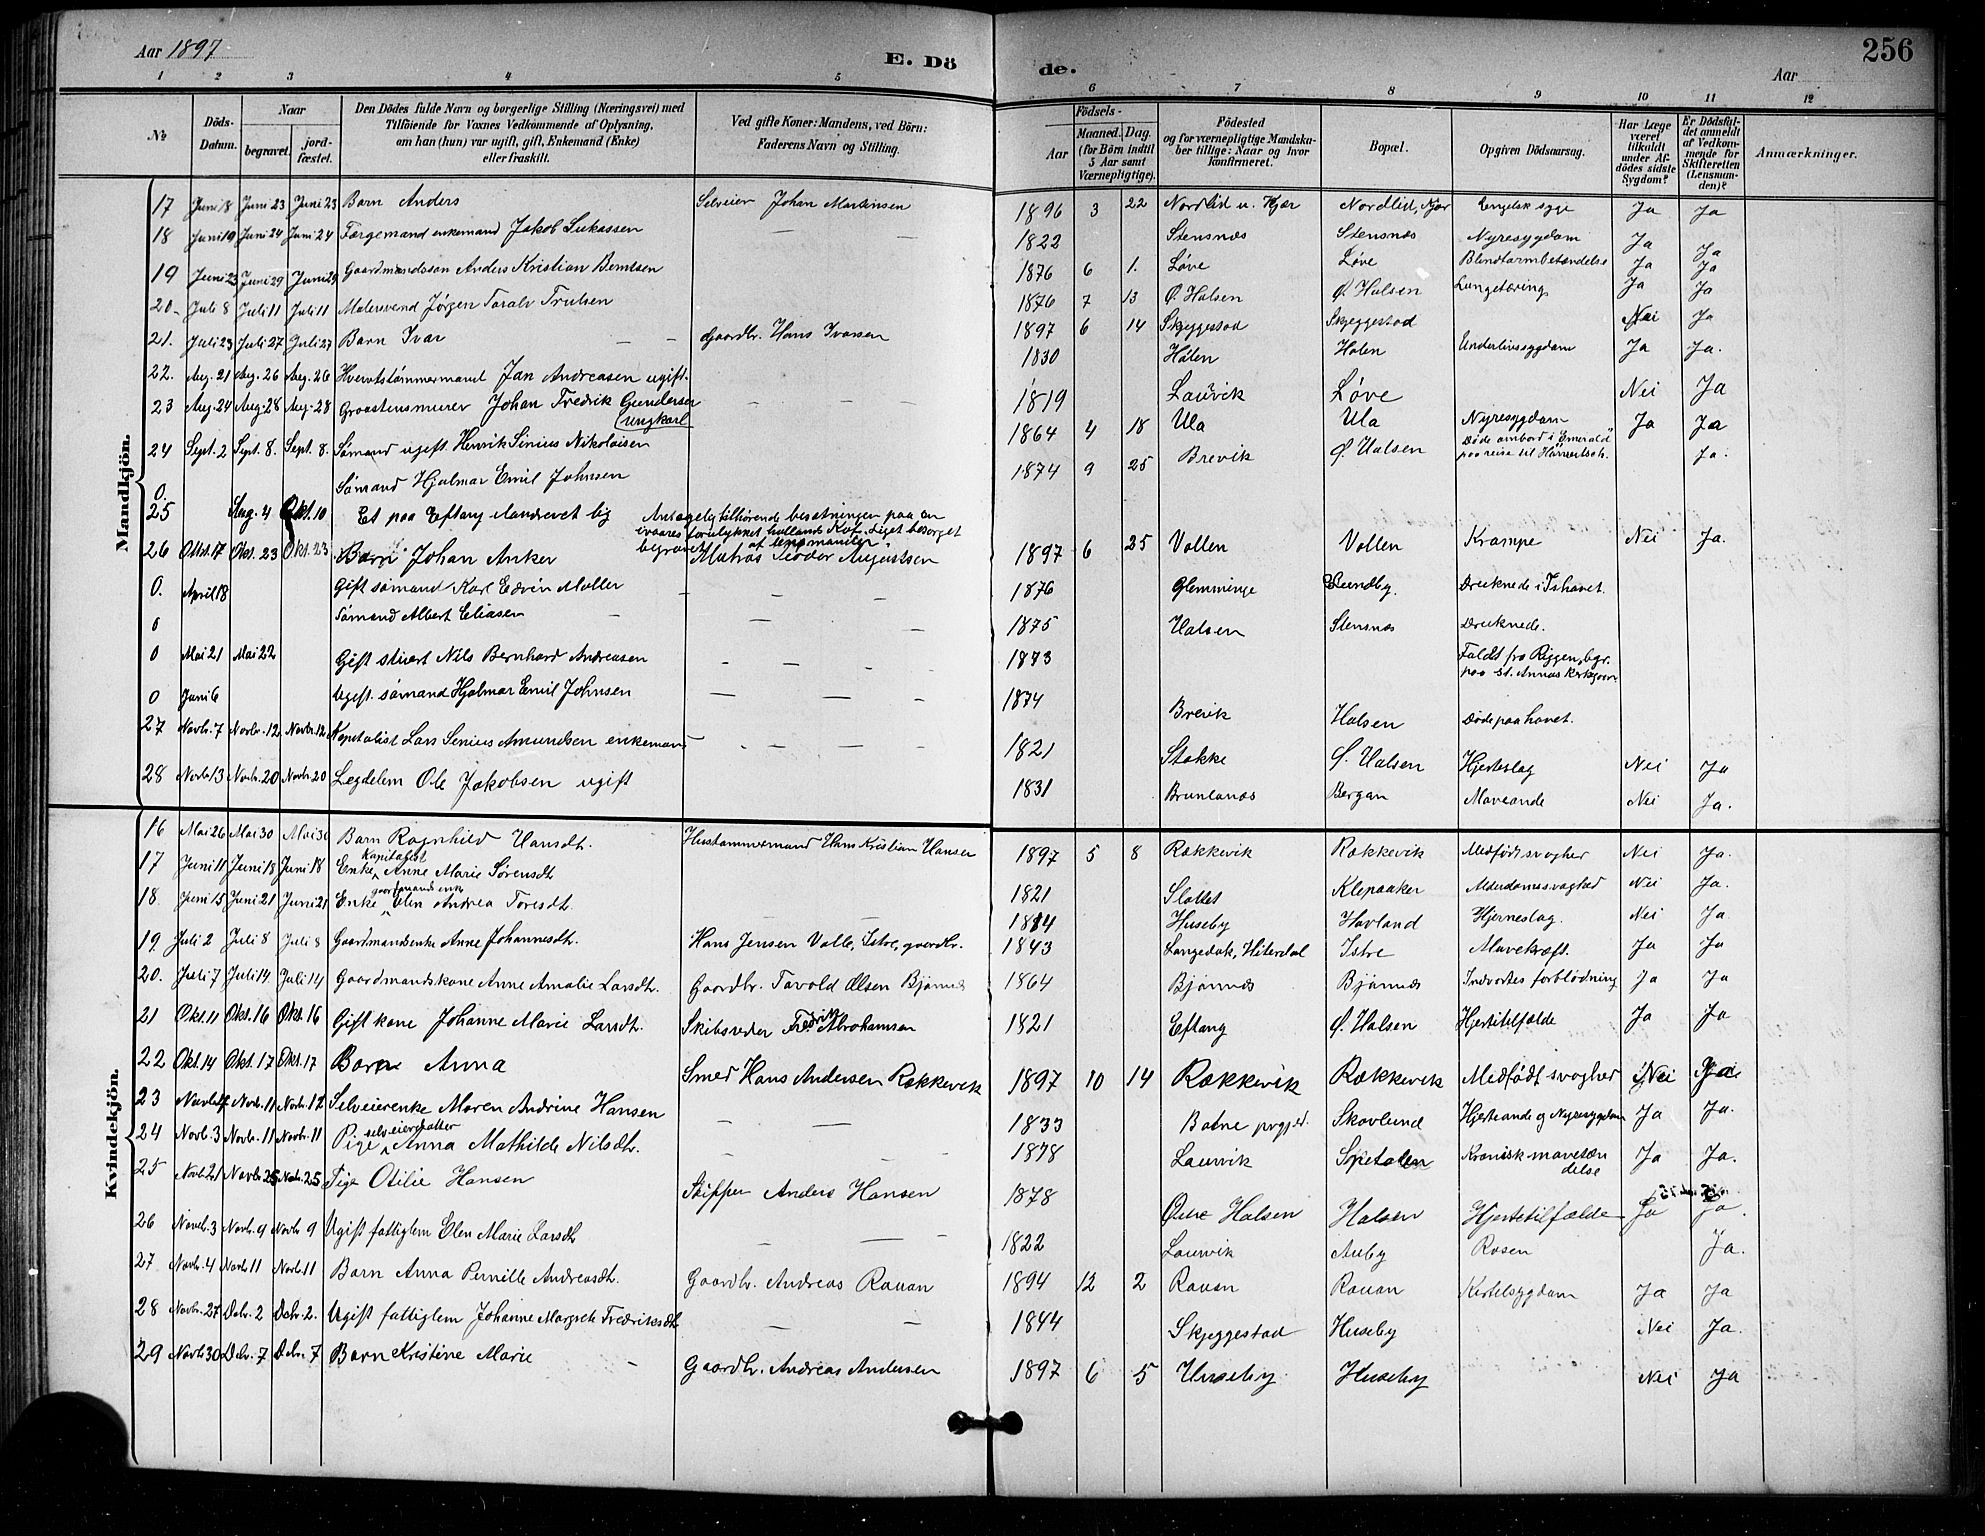 Aar 1897
E. Dö
de.
Aar
256
1 2 3 4 5 6 7 8 9 10 11 12
No
Döds-Datum.
Naar
begravet.
jordfæstet.
Den Dödes fulde Navn og borgerlige Stilling (Næringsvei) med
Tilföiende for Voxnes Vedkommende af Oplysning,
om han (hun) var ugift, gift, Enkemand (Enke)
eller fraskilt.
Ved gifte Koner: Mandens, ved Börn:
Faderens Navn og Stilling.
Födsels-
Aar
Maaned. Dag.
(for Börn indtil
5 Aar samt
Værnepligtige).
Födested
og for værnepligtige Mandska-
ber tillige: Naar og hvor
konfirmeret.
Bopæl.
Opgiven Dödsaarsag.
Har Læge
været
tilkaldt
under Af-
dödes sidste
Sygdom?
Er Dödsfal-
det anmeldt
af Vedkom-
mende for
Skifteretten
(Lensman-
den)?
Anmærkninger.
Mandkjön.
17 Juni 18 Juni 23 Juni 23 Barn Anders Selveier Johan Martinsen 1896 3 22 Nordlid u. Kjær Nordlid, Kjær Engelsk syge Ja Ja
18 Juni 19 Juni 24 Juni 24 Færgemand enkemand Jakob Lukassen — — 1822 Stensnæs Stensnæs Nyresygdom Ja Ja
19 Juni 23 Juni 29 Juni 29 Gaardmandssøn Anders Kristian Berntsen 1876 6 1. Løve Løve Blindtarmbetændelse Ja Ja
20. Juli 8 Juli 11 Juli 11 Malersvend Jørgen Taralv Trulsen 1876 7 13 Ø. Halsen Ø. Halsen Lungetæring Ja Ja
21. Juli 23 Juli 27 Juli 27 Barn Ivar — — Gaardbr. Hans Ivarsen 1897 6 14 Skjeggestad Skjeggestad Nei Ja
22. Aug. 21 Aug. 26 Aug. 26 Hvervtstømmermand Jan Andreasen ugift. 1830 Holen Holen Underlivssygdom Ja Ja.
23 Aug. 24 Aug. 28 Aug. 28 Graastensmurer Johan Fredrik Gundersen — — — 1819 Laurvik Løve Nei Ja
ungkarl
24 Sept. 2 Sept. 8. Sept. 8. Sømand ugift Henrik Sinius Nikolaisen 1864 4 18 Ula Ula Nyresygdom Ja Ja
0. Sømand Hjalmar Emil Johnsen 1874 9 25 Brevik Ø. Halsen Døde ombord i "Emerald" Ja.
paa reise til
25 Aug. 4 Okt. 10 Et paa Eftang ilanddrevet lig Antagelig tilhørende besætningen paa en
ivaares forulykket hollandsk Kof. Liget besørget
begravet af
26 Oktbr. 17 Okt. 23 Okt. 23 Barn Johan Anker Matros Augustsen 1897 6 25 Vallen Vallen Krampe Nei Ja.
0. April 18 Gift sømand Karl Edvin Møller — — — 1876 Glemminge Lundby. Druknede i Ishavet.
0 Sømand Albert Eliasen — — — 1875 Halsen Stensnæs Druknede.
0 Mai 21 Mai 22 Gift stuert Nils Bernhard Andreasen — — — — 1873 Faldt fra Riggen, bgr.
paa St. Annas Kirkegaard
0 Juni 6 Ugift. sømand Hjalmar Emil Johnsen — — — 1874 Brevik Halsen Døde paa havet.
27 Novbr. 7 Novbr. 12 Novbr. 12 Kapitalist Lars Senius Amundsen enkemand — — — — 1821 Stokke Ø. Halsen Hjerteslag Nei Ja
28 Novbr. 13 Novbr. 20 Novbr. 20 Legdelem Ole Jakobsen ugift 1831 Brunlanæs Bergan Maveonde Nei Ja.
Kvindekjön.
16 Mai 26 Mai 30 Mai 30 Barn Ragnhild Hansdt. Hustømmermand Hans Kristian Hansen 1897 5 8 Rækkevik Rækkevik Medfødt svaghed Nei Ja.
Kapitalist
17 Juni 11 Juni 18 Juni 18 Enke Anne Marie Sørensdt. 1821 Slottet Klepaaker Alderdomssvaghed Nei Ja.
gaardmands enke
18. Juni 15 Juni 21 Juni 21 Enke Elen Andrea Toresdt. — — 1814 Huseby Havland Hjerneslag. Nei Ja
19 Juli 2 Juli 8 Juli 8 Gaardmandsenke Anne Johannesdt. Hans Jensen Valle, Istre, gaardbr. 1843 Langedak, Hiterdal Istre Mavekræft. Ja Ja
20. Juli 7 Juli 14 Juli 14 Gaardmandskone Anne Amalie Larsdt. Gaardbr. Tavold Olsen Bjønnes 1864 Bjønnæs Bjønnæs Indvortes forblødning Ja Ja
21 Okt. 11 Okt. 16 Okt. 16 Gift kone Johanne Marie Larsdt. Skibsreder Fredrik Abrahamsen 1821 Eftang Ø. Halsen Hjertetilfælde Ja Ja
22 Okt. 14 Okt. 17 Okt. 17 Barn Anna Smed Hans Andersen Rækkevik 1897 10 14 Rækkevik Rækkevik Medfødt svaghed Nei Ja
23 Novbr. Novbr. 11 Novbr. 12 Selveierenke Maren Andrine Hansen — — 1833 Botne prgjd. Skovlund Hjerteonde og Nyresygdom Ja Ja.
selveierdatter
24 Novb. 3 Novbr. 11 Novbr. 11 Pige Anna Mathilde Nilsdt. — — — 1878 Laurvik Spetalen Kronisk mavebetæn Ja Ja.
delse
25 Novbr. 21 Novbr. 25 Novbr. 25 Pige Otilie Hansen Skipper Anders Hansen 1878 Østre Halsen Halsen Hjertetilfælde Ja Ja.
26 Novbr. 3 Novbr. 9 Novbr. 9 Ugift fattiglem Elen Marie Larsdt. — — — 1822 Laurvik Auby Rosen Ja.
27 Novbr. 4 Novbr. 11 Novbr. 11 Barn Anna Pernille Andreasdt. Gaardbr. Andreas Rauan 1894 12 2 Rauan Rauan Kirtelsygdom Ja Ja
28 Novbr. 27 Debr. 2 Debr. 2. Ugift fattiglem Johanne Margrete Fredriksdt. — — 1844 Skjeggestad Huseby Nei Ja.
29 Novbr. 30 Debr. 7 Debr. 7 Barn Kristine Marie — Gaardbr. Andreas Andersen 1897 6 5 Huseby Huseby Nei Ja